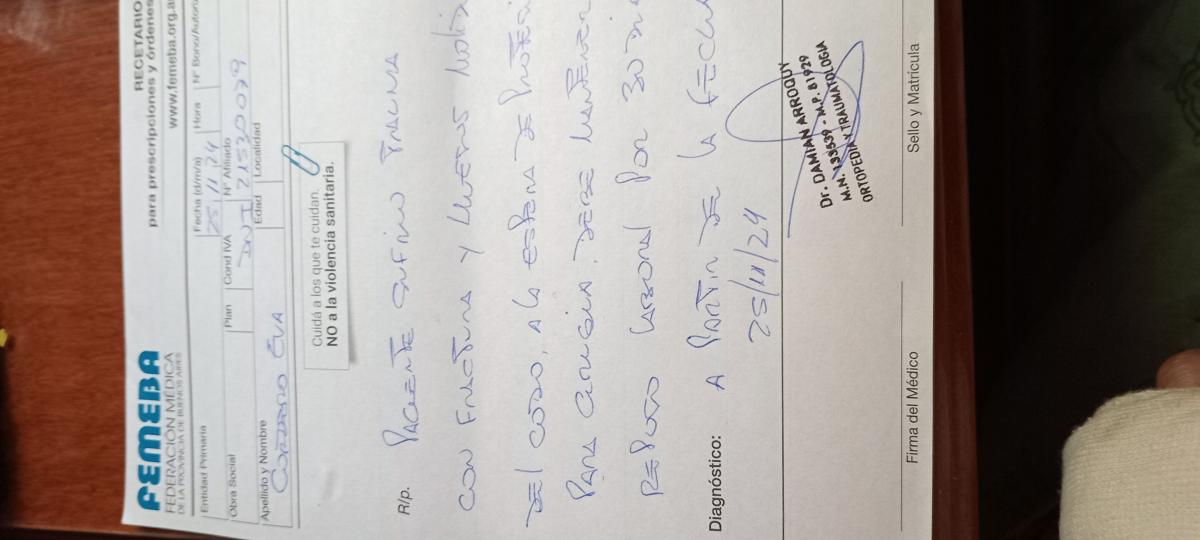 FEMEBA
FEDERACIÓN MÉDICA
DE LA PROVINCIA DE BUENOS AIRES
RECETARIO
para prescripciones y órdenes
www.femeba.org.a
Entidad Primaria
Fecha (d/m/a) Hora Nº Bono/Autori
25 11 24
Obra Social Plan Cond IVA Nº Afiliado
DNI 21530079
Apellido y Nombre Edad Localidad
EVA
Cuidá a los que te cuidan.
NO a la violencia sanitaria.
R/p. PACIENTE SUFRIO TRAUMA
CON FRACTURA Y
DEL CODO, A LA ESPERA DE
PARA CIRUGIA, DEBE
REPOSO LABORAL POR 30
Diagnóstico: A PARTIR DE LA FECHA
25/11/24
Dr. DAMIAN ARROQUY
M.N. 133539 - M.P. 81929
ORTOPEDIA Y TRAUMATOLOGIA
Firma del Médico Sello y Matrícula